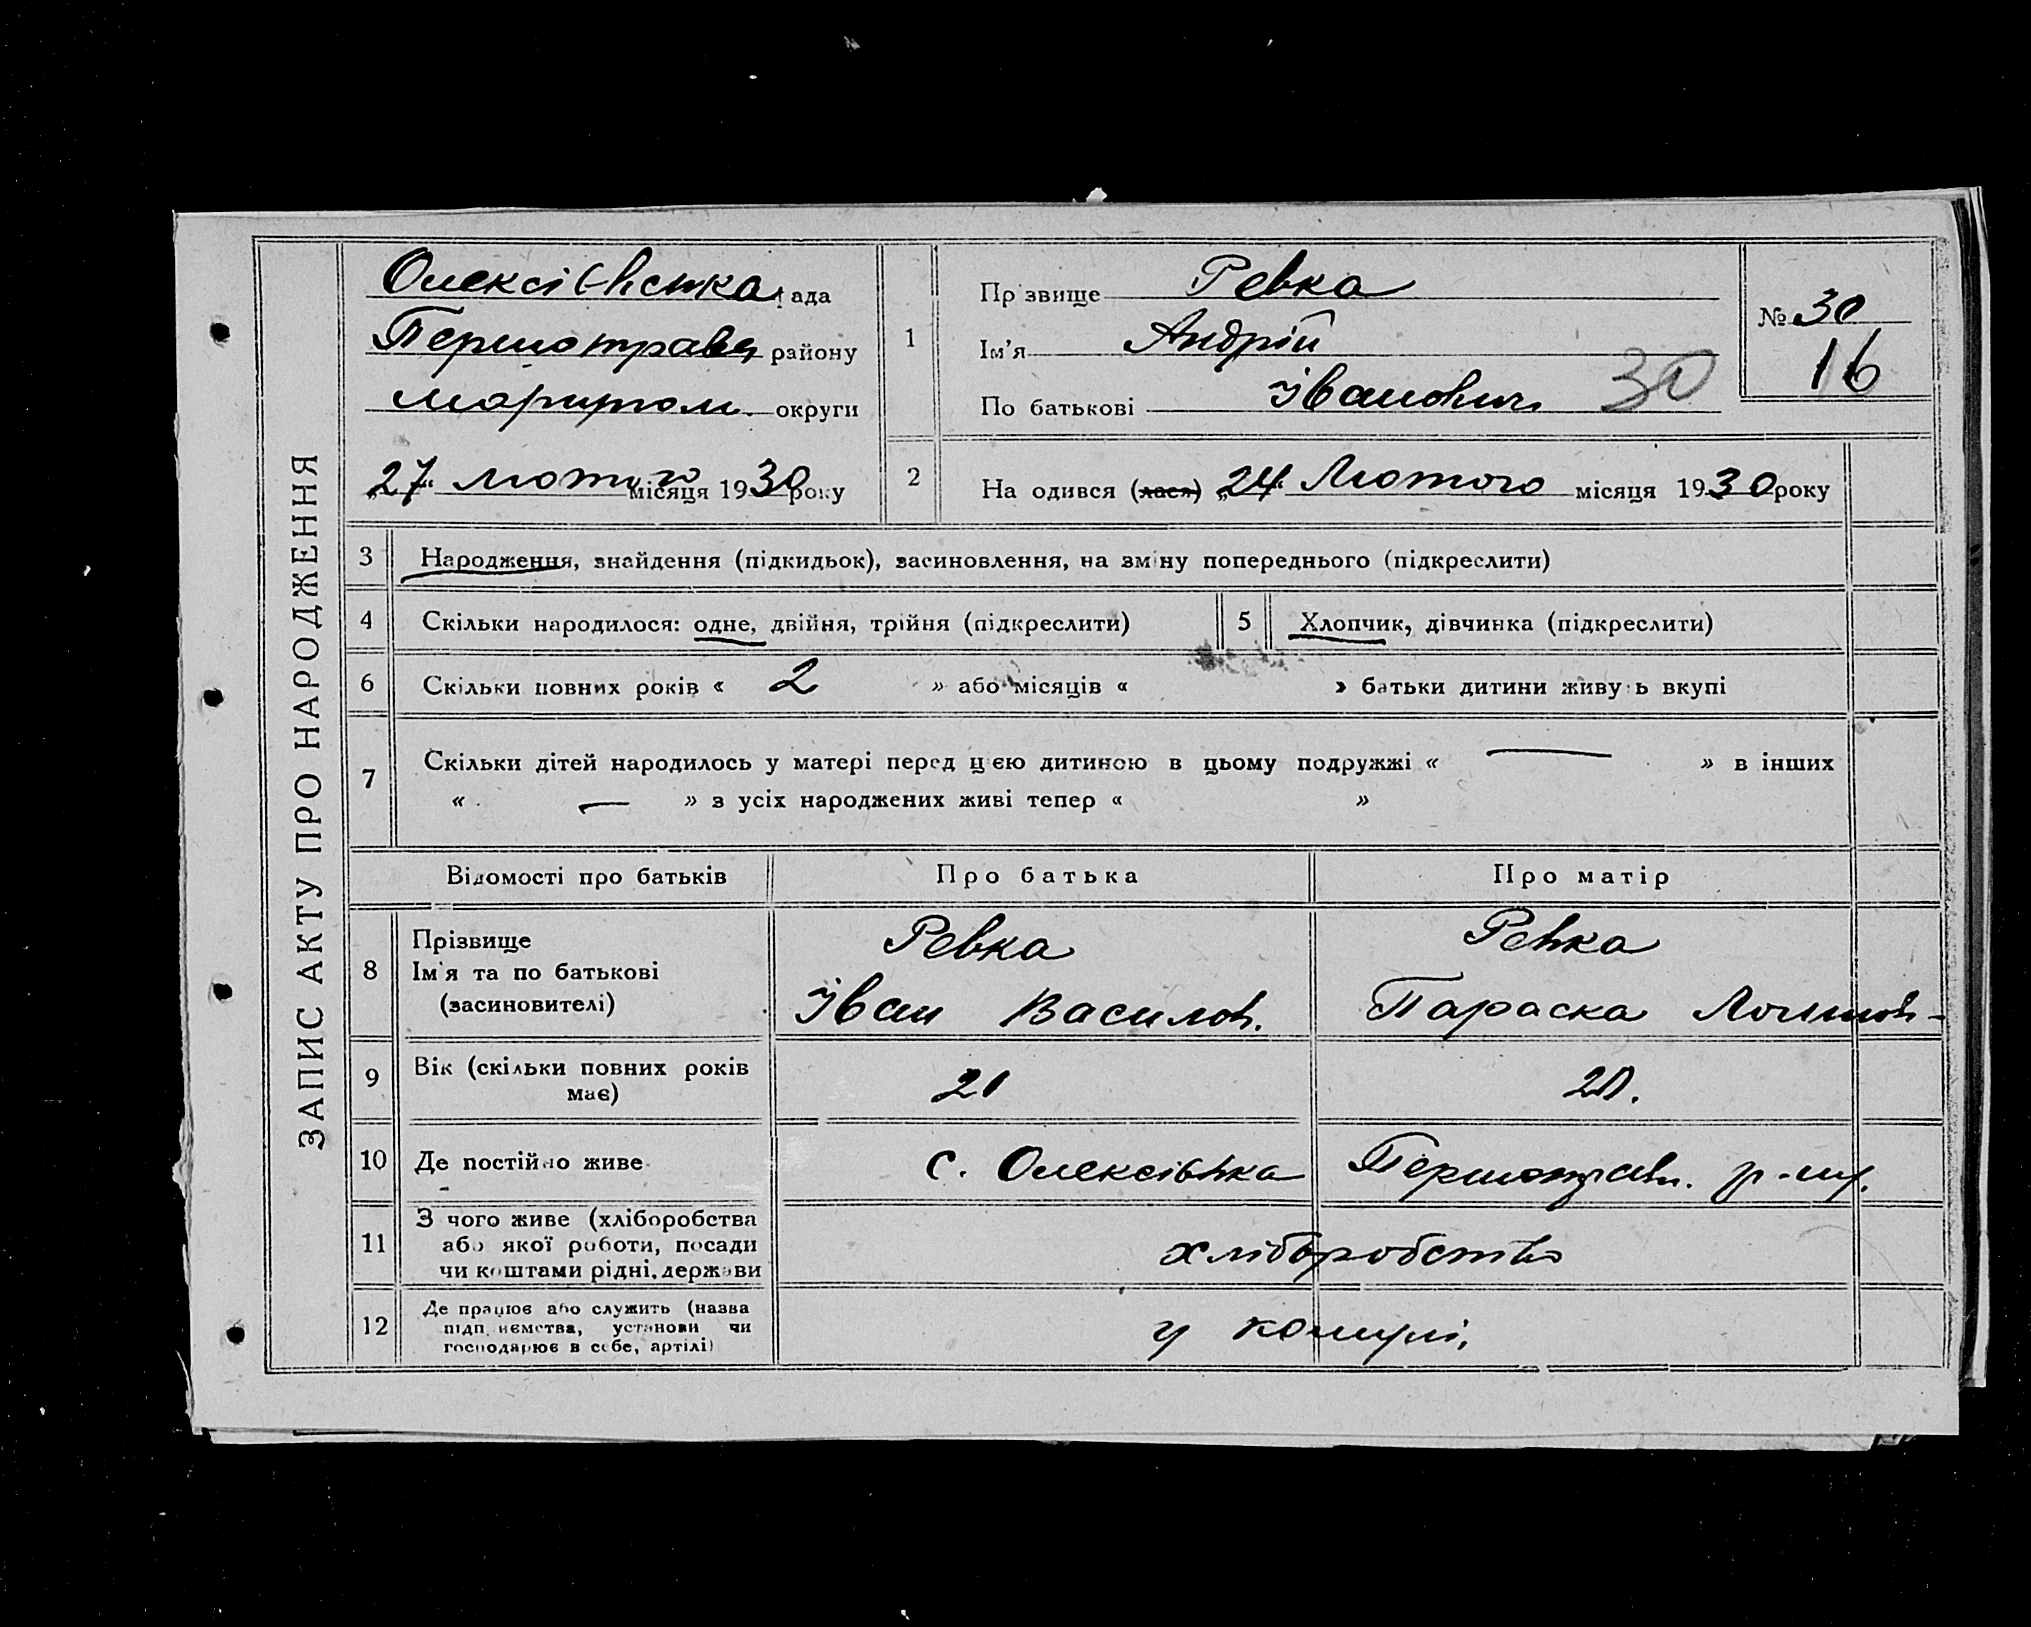 ЗАПИС АКТУ ПРО НАРОДЖЕННЯ
Олексієвська рада
Першотравен району
Маріупол. округи
„27“ Лютого місяця 1930 року
1
Прізвище Ревка
Ім’я Андрій
По батькові Іванович 30
№ 30
16
2
На одився (лася) „24“ Лютого місяця 1930 року
3 Народження, знайдення (підкидьок), засиновлення, на зміну попереднього (підкреслити)
4 Скільки народилося: одне, двійня, трійня (підкреслити)
5 Хлопчик, дівчинка (підкреслити)
6 Скільки повних років « 2 » або місяців « » батьки дитини живуть вкупі
7 Скільки дітей народилось у матері перед цією дитиною в цьому подружжі « — » в інших
« — » з усіх народжених живі тепер « »
Відомості про батьків Про батька Про матір
8 Прізвище
Ім’я та по батькові
(засиновителі)
Ревка
Іван Василов.
Ревка
Параска
9 Вік (скільки повних років
має)
21
20.
10 Де постійно живе с. Олексіївка Першотравн. р-ну.
11 З чого живе (хліборобства
або якої роботи, посади
чи коштами рідні, держави
хліборобство
12 Де працює або служить (назва
підприємства, установи чи
господарює в себе, артілі)
у комуні.